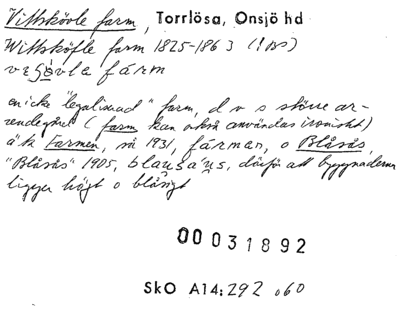 Vittskövle farm, Torrlösa, Onsjö hd
Wittsköfle farm 1825-1863 (! BS)
vesǫ́vla fárm
en icke "legaliserad" farm, d v s större ar-
rendegård (farm kan också användas ironiskt)
äk Farmen, så 1931, fárman, o Blåsås,
"Blåsås" 1905, blausáus, därför att byggnaderna
ligger högt o blåsigt
00031892
SkO A14:292 .60